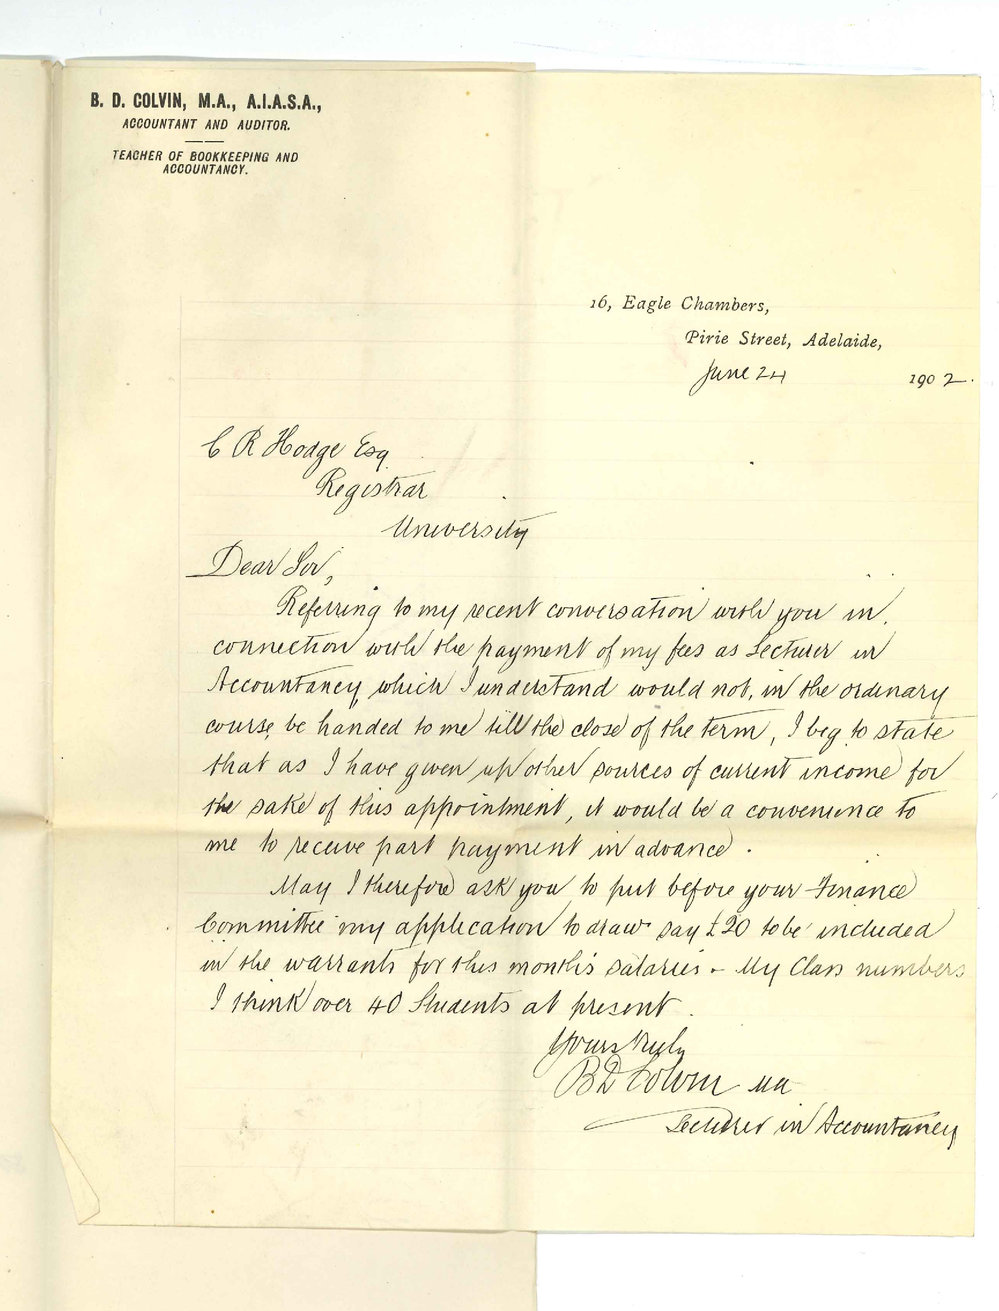 B. D. COLVIN, M.A., A.I.A.S.A.,
ACCOUNTANT AND AUDITOR.
TEACHER OF BOOKKEEPING AND
ACCOUNTANCY.
16, Eagle Chambers,
Pirie Street, Adelaide,
June 24 1902.
C R Hodge Esq
Registrar
University
Dear Sir,
Referring to my recent conversation with you in
connection with the payment of my fees as Lecturer in
Accountancy which I understand would not, in the ordinary
course, be handed to me till the close of the term, I beg to state
that as I have given up other sources of current income for
the sake of this appointment, it would be a convenience to
me to receive part payment in advance.
May I therefore ask you to put before your Finance
Committee my application to draw say £20 to be included
in the warrants for this month's salaries - My Class numbers
I think over 40 Students at present.
Yours truly
B D Colvin MA
Lecturer in Accountancy